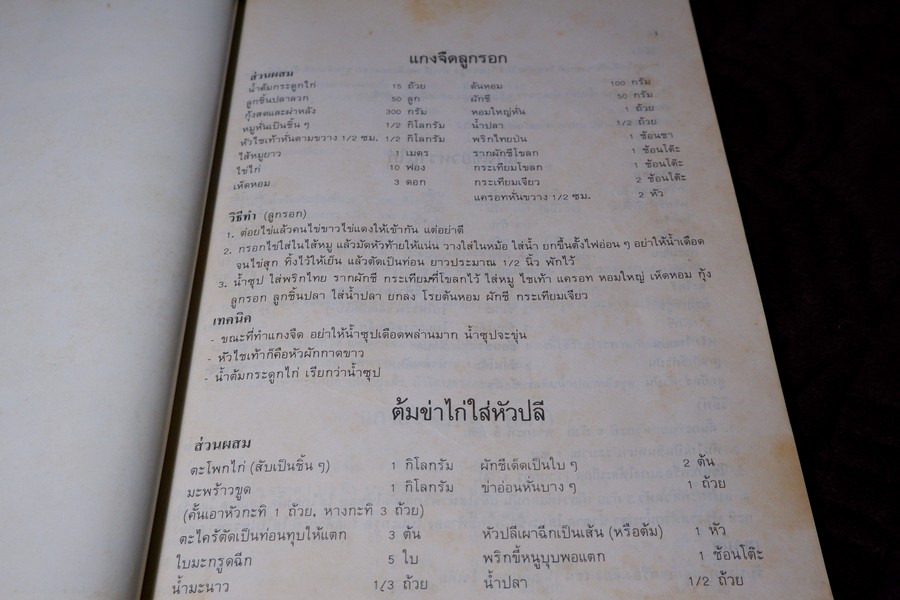 แกงจืดลูกรอก
ส่วนผสม
น้ำต้มกระดูกไก่ 15 ถ้วย ต้นหอม 100 กรัม
ลูกชิ้นปลาลวก 50 ลูก ผักชี 50 กรัม
กุ้งสดและผ่าหลัง 300 กรัม หอมใหญ่หั่น 1 ถ้วย
หมูหั่นเป็นชิ้น ๆ 1/2 กิโลกรัม น้ำปลา 1/2 ถ้วย
หัวไชเท้าหั่นตามขวาง 1/2 ซม. 1/2 กิโลกรัม พริกไทยป่น 1 ช้อนชา
ไส้หมูยาว 1 เมตร รากผักชีโขลก 1 ช้อนโต๊ะ
ไข่ไก่ 10 ฟอง กระเทียมโขลก 1 ช้อนโต๊ะ
เห็ดหอม 3 ดอก กระเทียมเจียว 2 ช้อนโต๊ะ
แครอทหั่นขวาง 1/2 ซม. 2 หัว
วิธีทำ (ลูกรอก)
1. ต่อยไข่แล้วคนไข่ขาวไข่แดงให้เข้ากัน แต่อย่าตี
2. กรอกไข่ใส่ในไส้หมู แล้วมัดหัวท้ายให้แน่น วางใส่ในหม้อ ใส่น้ำ ยกขึ้นตั้งไฟอ่อน ๆ อย่าให้น้ำเดือด
จนไข่สุก ทิ้งไว้ให้เย็น แล้วตัดเป็นท่อน ยาวประมาณ 1/2 นิ้ว พักไว้
3. น้ำซุป ใส่พริกไทย รากผักชี กระเทียมที่โขลกไว้ ใส่หมู ไชเท้า แครอท หอมใหญ่ เห็ดหอม กุ้ง
ลูกรอก ลูกชิ้นปลา ใส่น้ำปลา ยกลง โรยต้นหอม ผักชี กระเทียมเจียว
เทคนิค
- ขณะที่ทำแกงจืด อย่าให้น้ำซุปเดือดพล่านมาก น้ำซุปจะขุ่น
- หัวไชเท้าก็คือหัวผักกาดขาว
- น้ำต้มกระดูกไก่ เรียกว่าน้ำซุป
ต้มข่าไก่ใส่หัวปลี
ส่วนผสม
ตะโพกไก่ (สับเป็นชิ้น ๆ) 1 กิโลกรัม ผักชีเด็ดเป็นใบ ๆ 2 ต้น
มะพร้าวขูด 1 กิโลกรัม ข่าอ่อนหั่นบาง ๆ 1 ถ้วย
(คั้นเอาหัวกะทิ 1 ถ้วย, หางกะทิ 3 ถ้วย)
ตะไคร้ตัดเป็นท่อนทุบให้แตก 3 ต้น หัวปลีเผาฉีกเป็นเส้น (หรือต้ม) 1 หัว
ใบมะกรูดฉีก 5 ใบ พริกขี้หนูบุบพอแตก 1 ช้อนโต๊ะ
น้ำมะนาว 1/3 ถ้วย น้ำปลา 1/2 ถ้วย